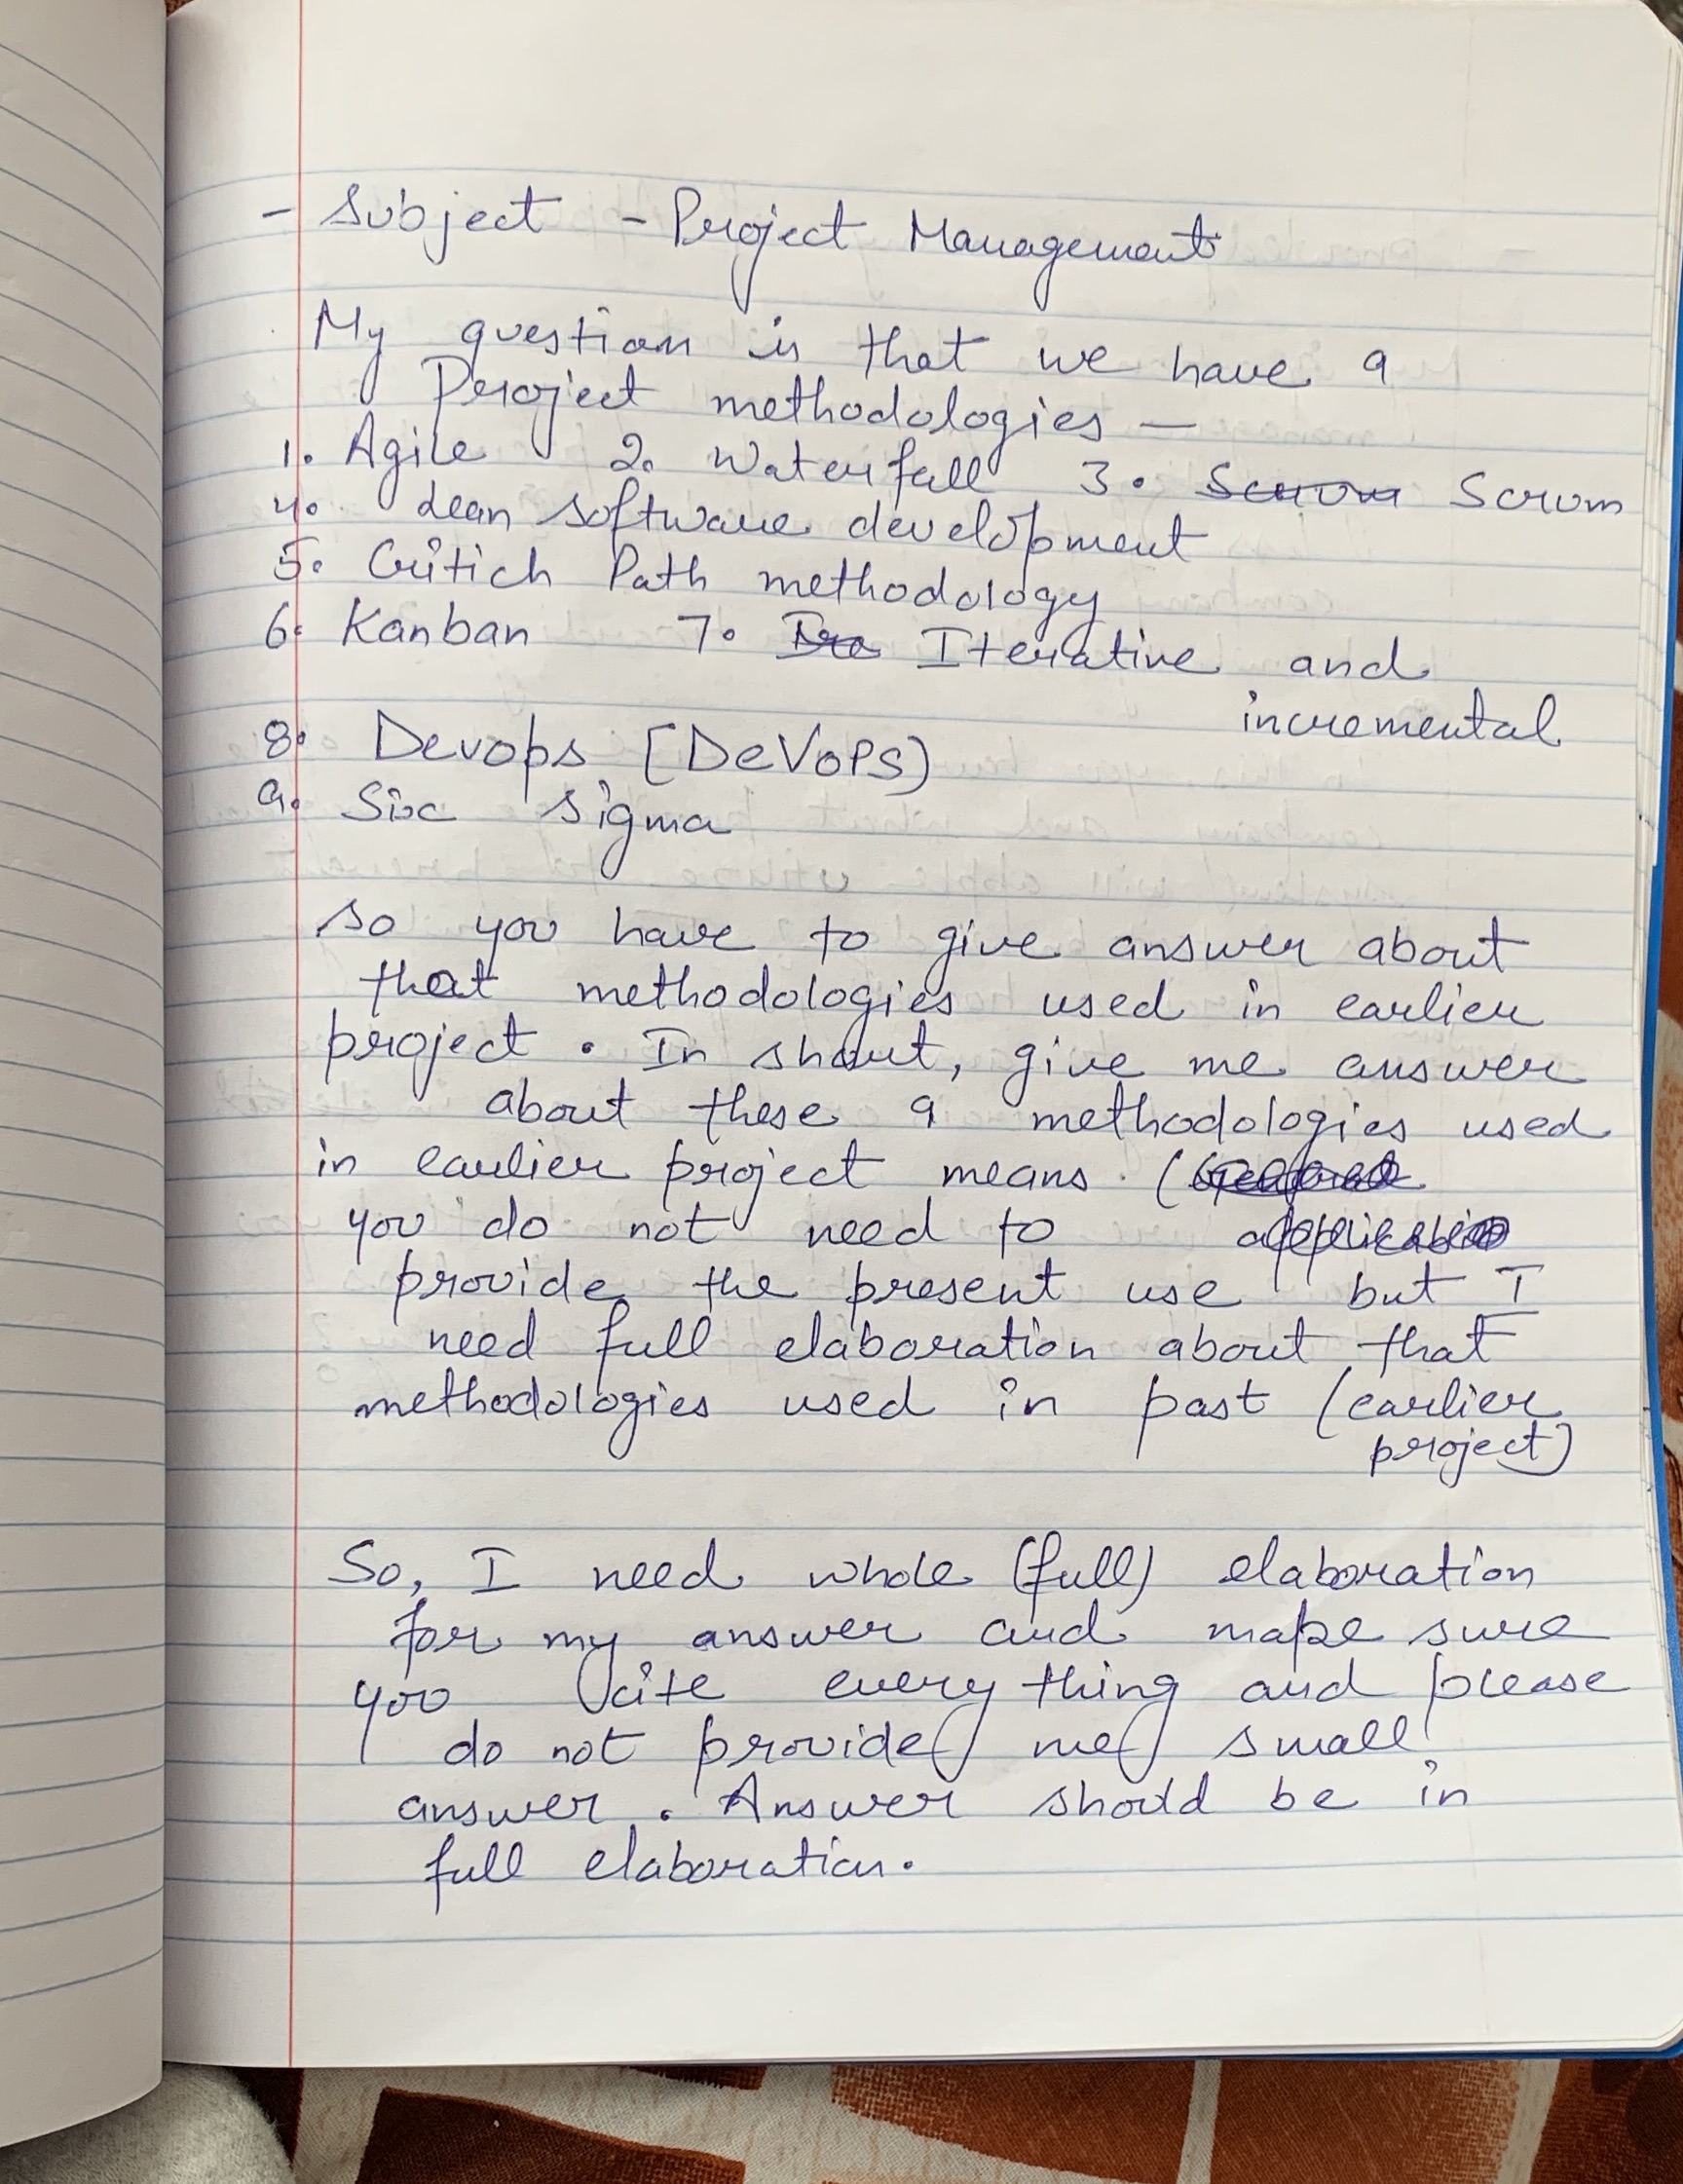 - Subject - Project Management
My question is that we have 9
Project methodologies —
1. Agile 2. Waterfall 3. Scrum Scrum
4. Lean software development
5. Critich Path methodology
6. Kanban 7. Ire Iterative and
incremental
8. Devops [DeVOPS)
9. Six Sigma
so you have to give answer about
that methodologies used in earlier
project. In short, give me answer
about these 9 methodologies used
in earlier project means (
you do not need to
provide the present use but I
need full elaboration about that
methodologies used in past (earlier
project)
So, I need whole (full) elaboration
for my answer and make sure
you cite everything and please
do not provide me small
answer. Answer should be in
full elaboration.